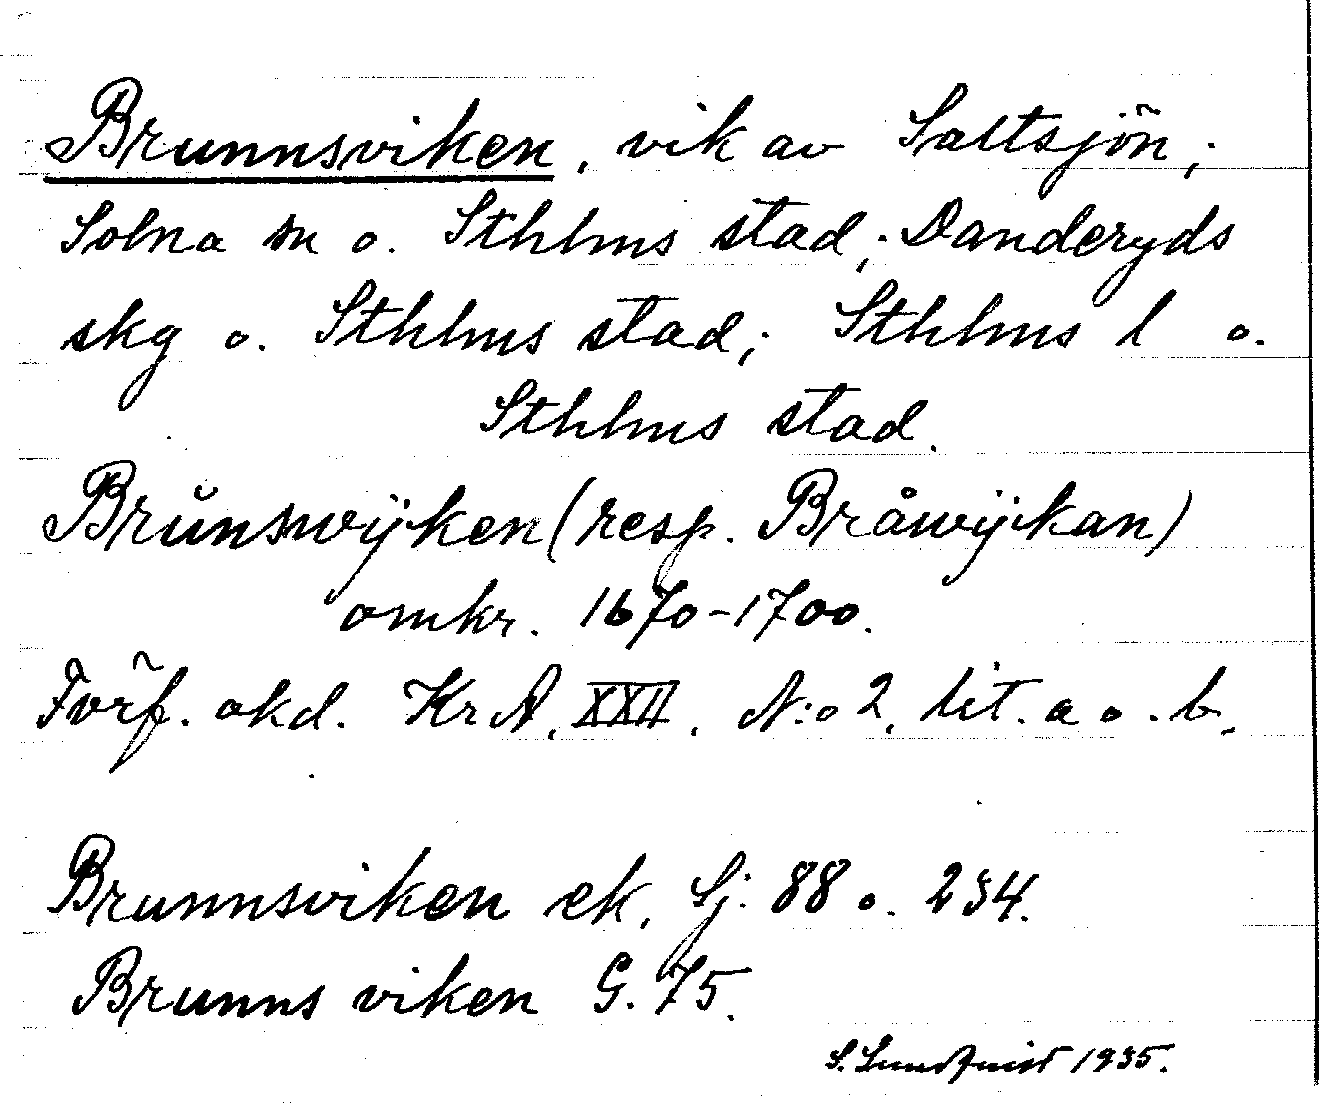 Brunnsviken, vik av Saltsjön;
Solna sn o. Sthlms stad; Danderyds
skg o. Sthlms stad; Sthlms l o.
Sthlms stad.
Brŭnswÿken (resp. Bråwÿkan)
omkr. 1670-1700.
Förf. okd. Kr A. XXII. N:o 2. lit. a o. b.
Brunnsviken ek. Sj: 88 o. 234.
Brunns viken G. 75.
S. Lundquist 1935.